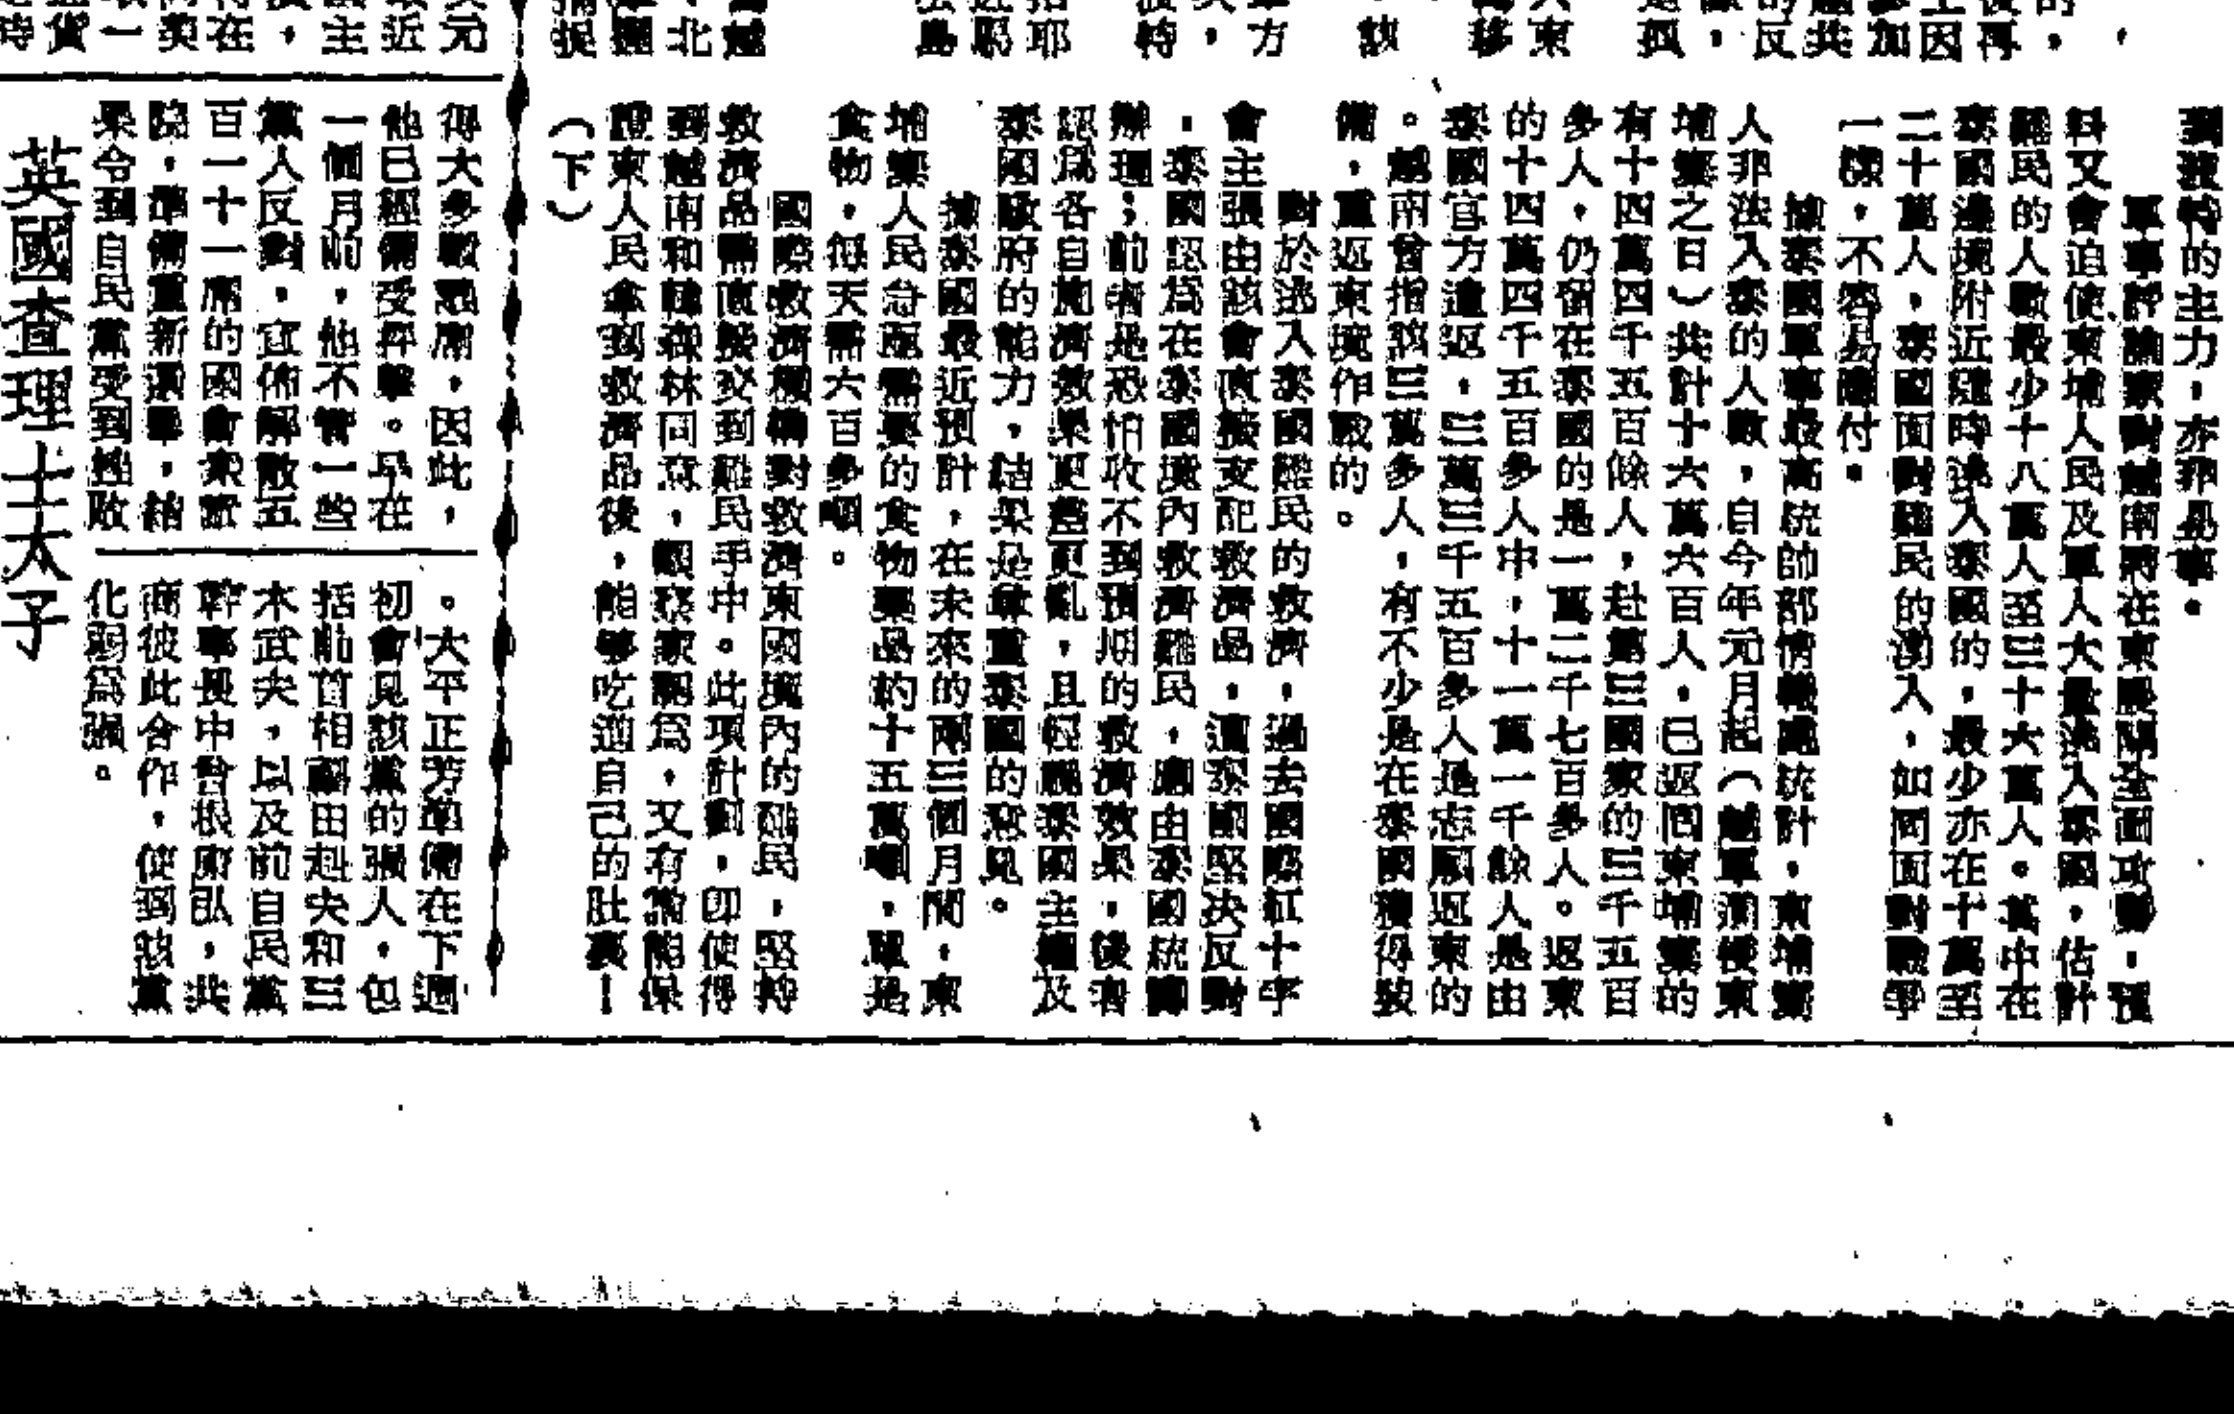 到波特的主力，亦非易事。
軍事評論家對越南將在東展開全面攻勢，預
料又會迫使柬埔人民及軍人大量湧入泰國，估計
難民的人數最少十八萬人至三十六萬人。其中在
泰國邊境附近隨時湧入泰國的，最少亦在十萬至
二十萬人，泰國面對難民的湧入，如同面對戰爭
一樣，不容易應付。
據泰國軍事最高統帥部情報處統計，柬埔寨
人非法入泰的人數，自今年元月起（越軍補侵柬
埔寨之日）共計十六萬六百人，已返回柬埔寨的
有十四萬四千五百餘人，赴第三國家的三千五百
多人，仍留在泰國的是一萬二千七百多人。返柬
的十四萬四千五百多人中，十一萬一千餘人是由
泰國官方遣返，三萬三千五百多人是志願返柬的
。越南曾指該三萬多人，有不少是在泰國獲得裝
備，重返柬境作戰的。
對於逃入泰國難民的救濟，過去國際紅十字
會主張由該會直接支配救濟品，遭泰國堅決反對
，泰國認為在泰國境內救濟難民，應由泰國統籌
辦理；前者是恐怕收不到預期的救濟效果，後者
認為各自施濟效果更差更亂，且侵越泰國主權及
泰國政府的能力，結果是尊重泰國的意見。
據泰國最近預計，在未來的兩三個月間，柬
埔寨人民急應需要的食物藥品約十五萬噸，單是
食物，每天需六百多噸。
國際救濟機構對救濟柬國境內的難民，堅持
救濟品需直接交到難民手中。此項計劃，即使得
到越南和韓森林同意，觀察家認為，又有誰能保
證柬人民拿到救濟品後，能够吃進自己的肚裏！
（下）
得大多數議席，因此，
他已經備受抨擊。早在
一個月前，他不管一些
黨人反對，宣佈解散五
百一十一席的國會衆議
院，準備重新選舉，結
果令到自民黨受到挫敗
。大平正芳準備在下週
初會見該黨的強人，包
括前首相福田赳夫和三
木武夫，以及前自民黨
幹事長中曾根康弘，共
商彼此合作，使到該黨
化弱爲強。
英國查理士太子